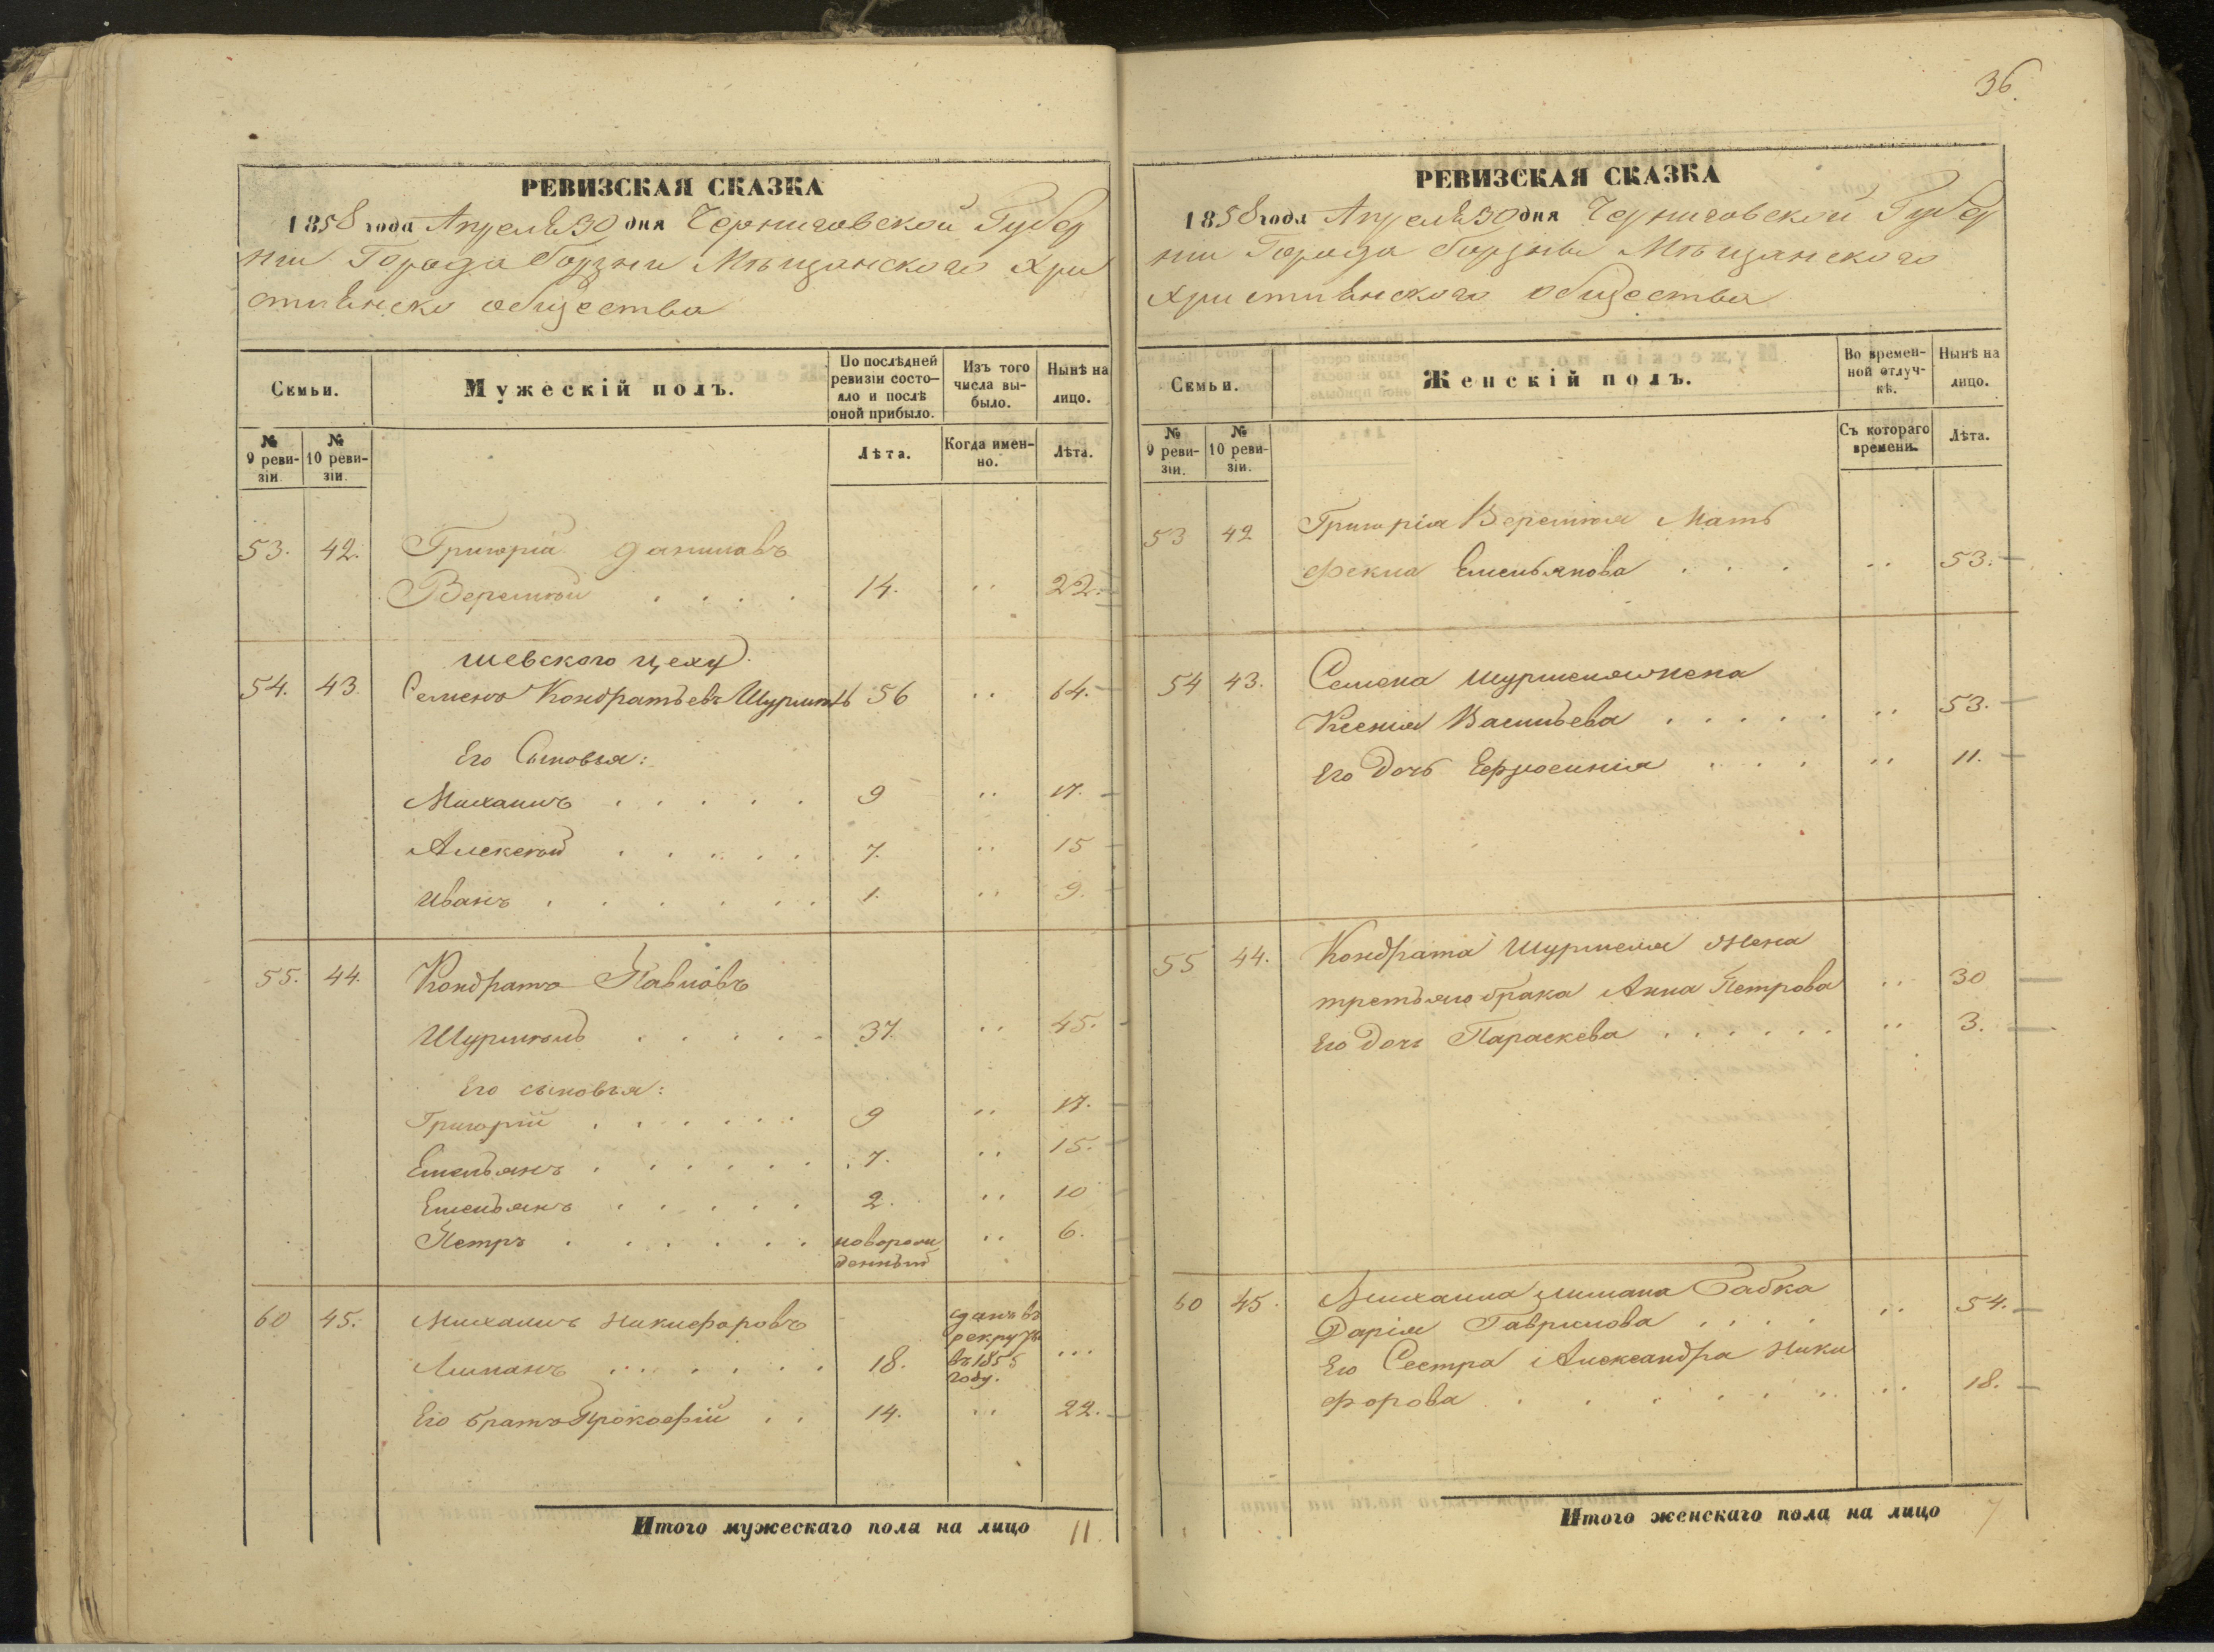 36.
РЕВИЗСКАЯ СКАЗКА
1858 года Апреля 30 дня Черниговской Губер
нии Города Борзни Мѣщанского Хри
стиянско общества
Семьи.
Мужескій полъ.
По послѣдней ревизіи состо-
яло и послѣ оной прибыло.
Изъ того числа вы-
было.
Нынѣ на лицо.
№ 9 реви-
зіи.
№ 10 реви-
зіи.
Лѣта.
Когда имен-
но.
Лѣта.
53. 42. Григорій Данилавъ
14. .. 22.
шевского цеху.
54. 43. Семенъ Кондратьевъ 56 .. 64.
Его Сыновья:
Михаилъ . . . . . 9 .. 17.
Алексей . . . . . 7. .. 15
Иванъ . . . . . . 1. .. 9.
55. 44. Кондратъ Павловъ
. . . . . 37. .. 45.
Его сыновья:
Григорій . . . . . . 9 .. 17.
Емельянъ . . . . . . 7. .. 15.
Емельянъ . . . . . 2. .. 10
Петръ . . . . . . новорож .. 6.
денный
60 45. Михаилъ Никифоровъ сданъ въ
рекруты
Липанъ . . . . . . 18. въ 1855 ...
году.
Его братъ Прокофій . . 14. .. 22.
Итого мужескаго пола на лицо 11.
РЕВИЗСКАЯ СКАЗКА
1858 года Апреля 30 дня Черниговской Губер
нии Города Борзны Мѣщанского
Християнского общества
Семьи.
Женскій полъ.
Во времен-
ной отлуч-
кѣ.
Нынѣ на лицо.
№ 9 реви-
зіи.
№ 10 реви-
зіи.
Съ котораго времени.
Лѣта.
53 42 Григорія Мать
Фекла Емельянова . . . .. 53.
54 43. Семена жена
Ксенія Васильева . . . . . .. 53.
Его Дочь Ефросинія . . . .. 11.
55 44. Кондрата жена
третьяго брака Анна Петрова .. 30
Его дочь Параскева . . . . . . .. 3.
60 45. Михаила Липана Бабка
Дарія Гаврилова . . . . .. 54.
Его Сестра Александра Ники
форова . . . . . . . .. 18.
Итого женскаго пола на лицо 7